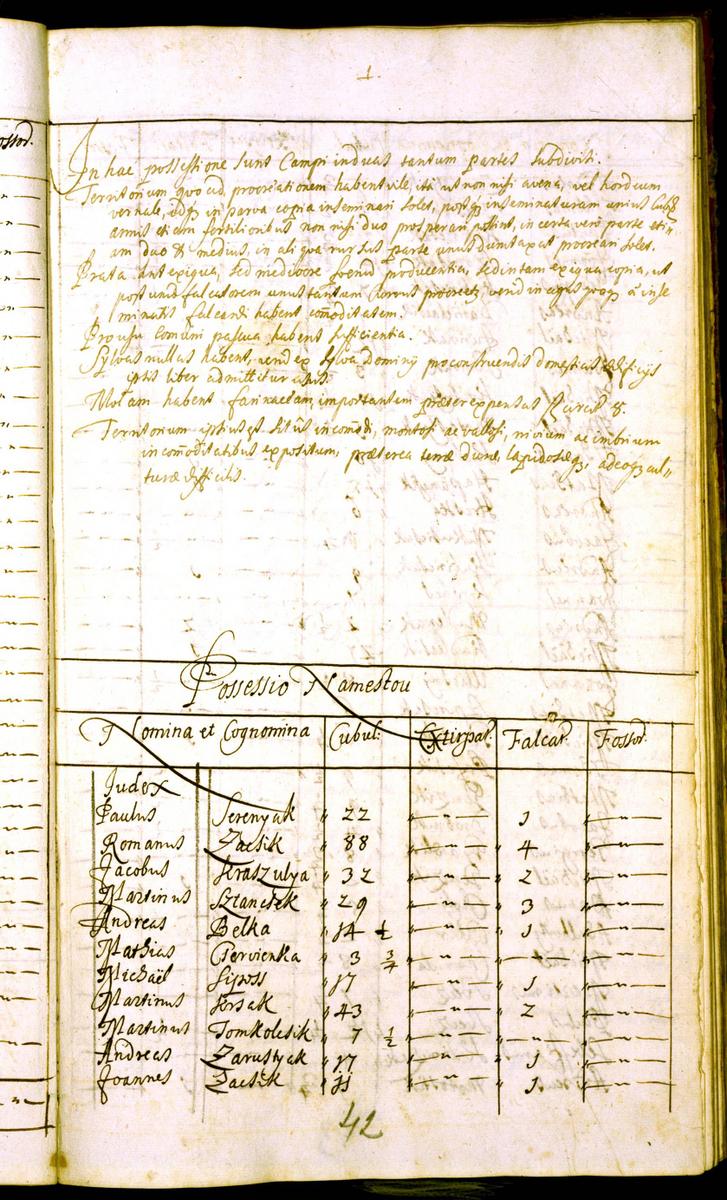 1.
In hac possessione sunt Campi induas tantum partes subdivisi.
Territorium quoad procreationem habent vile, ita ut non nisi avena, vel hordeum
vernale, in parva copia inseminari solet, inseminaturam unius Cubl
annis etiam fertilioribus non nisi duo prosperari possint, in certa vero parte eti„
am duo & medius, in aliqua rursus parte unus dumtaxat procreari solet.
Prata exigua, sed mediocre foenum producentia, sed in tam exigua copia, ut
post unum falcatorem unus tantum Currus procreetur,
minatis falcandi habent comoditatem.
Pro usu Comuni pascua habent sufficientia.
Sylvas nullas habent, ex sylva Dominij pro construendis domesticis ædificijs
ipsis liber admittitur usus.
Molam habent farinaceam, importantem præter expensas 8.
Territorium situs incomodi, montosi ac vallosi, nivium ac imbrium
incomoditatibus expositum, præterea terræ duræ, lapidosæq3, adeoq3 cul„
turæ difficilis.
Possessio Namestou
Nomina et Cognomina Cubul: Extirpat: Falcat: Fossor:
Judex
Paulus Serenyak „ 22 „ — „ — „ 1 „ — „ —
Romanus Zacsik „ 88 „ — „ — „ 4 „ — „ —
Jacobus Kraszulya „ 32 „ — „ — „ 2 „ — „ —
Martinus Sztancsek „ 29 „ — „ — „ 3 „ — „ —
Andreas Belka „ 14 ½ „ — „ — „ 1 „ — „ —
Mathias Cservienka „ 3 ¾ „ — „ — „ — „ — „ — „ —
Michaël Siposs „ 17 „ — „ — „ 1 „ — „ —
Martinus Kersak „ 43 „ — „ — „ 2 „ — „ —
Martinus Tomkolesik „ 7 ½ „ — „ — „ — „ — „ — „ —
Andreas Zarustyak „ 17 „ — „ — „ 1 „ — „ —
Joannes Zacsik „ 11 „ — „ — „ 1 „ — „ —
42